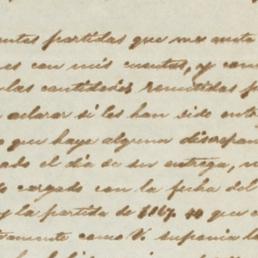 entes partidas que me anota
es con mis cuentas, y com
las cantidades remitidas p
aclarar si les han sido entre
que haya alguna discrepan
ado el dia de su entrega,
cargado con la fecha del
y la partida de que
tamente como V. suponia